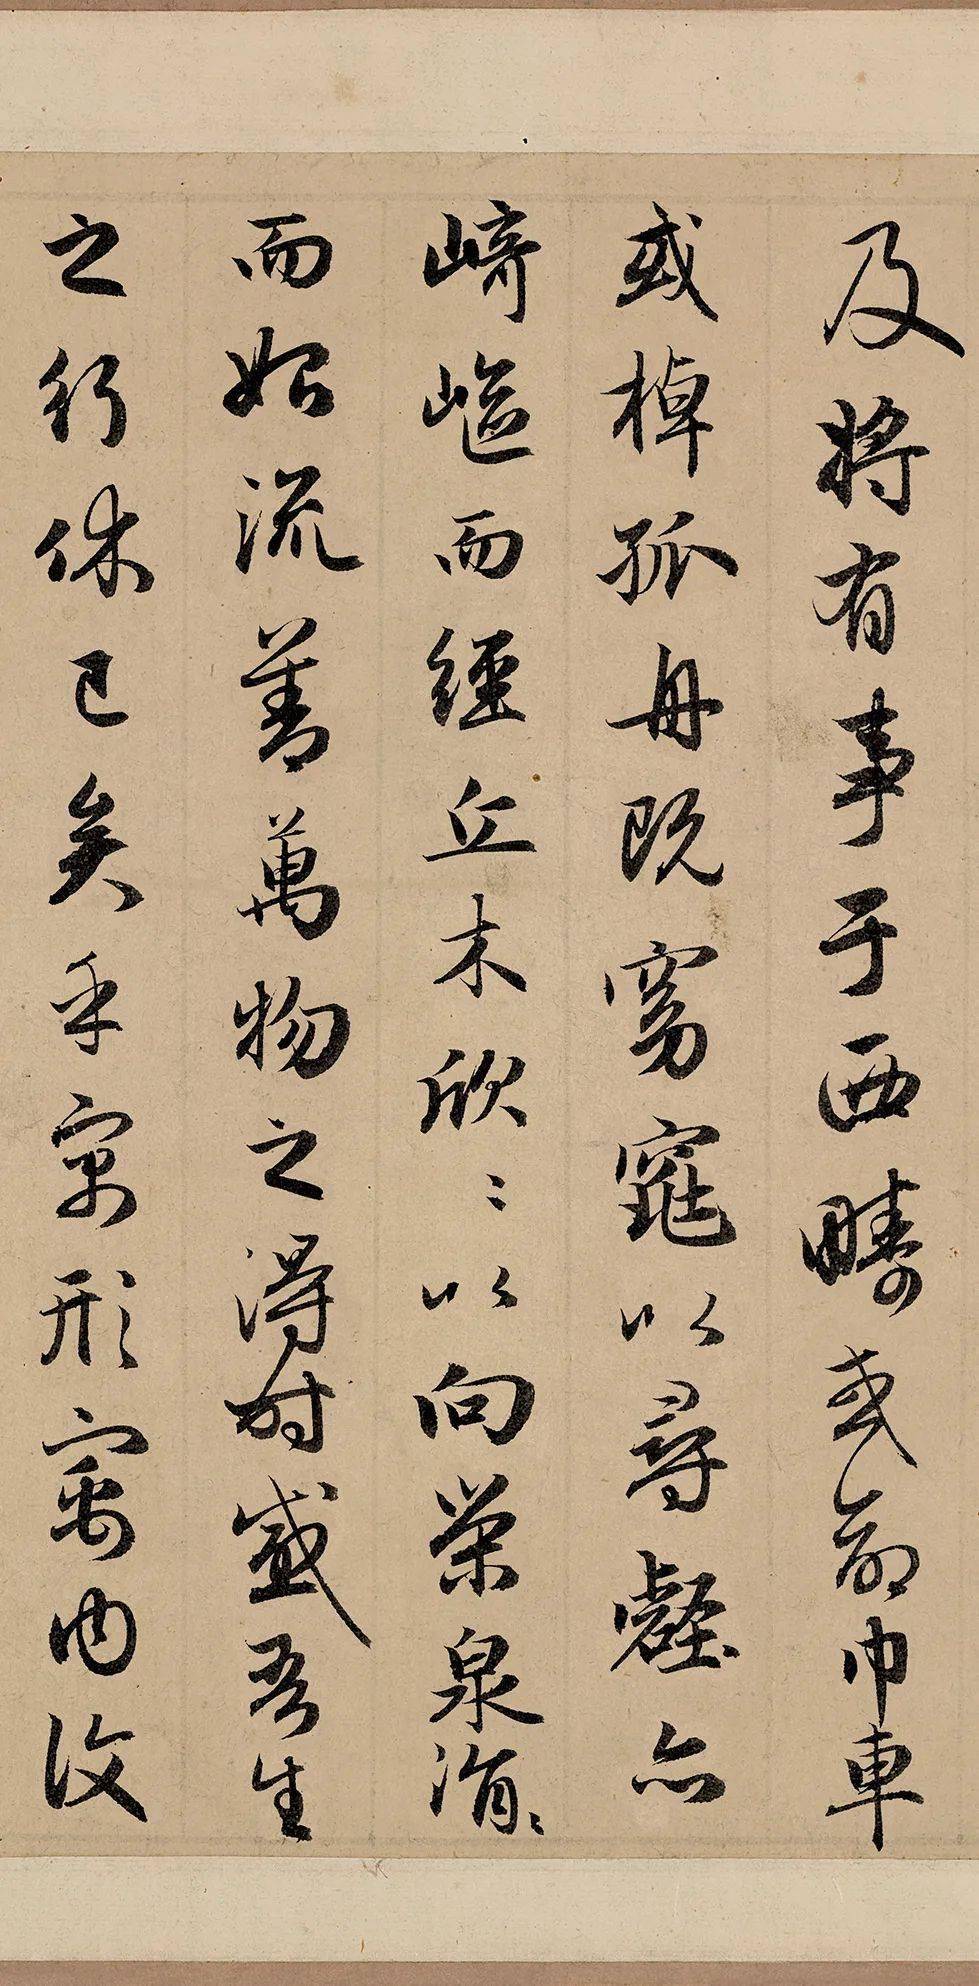 及將有事于西疇或命巾車
或棹孤舟既窈窕以尋壑亦
崎嶇而經丘木欣〻以向榮泉涓〻
而始流善萬物之得時感吾生
之行休已矣乎寓形㝢內復